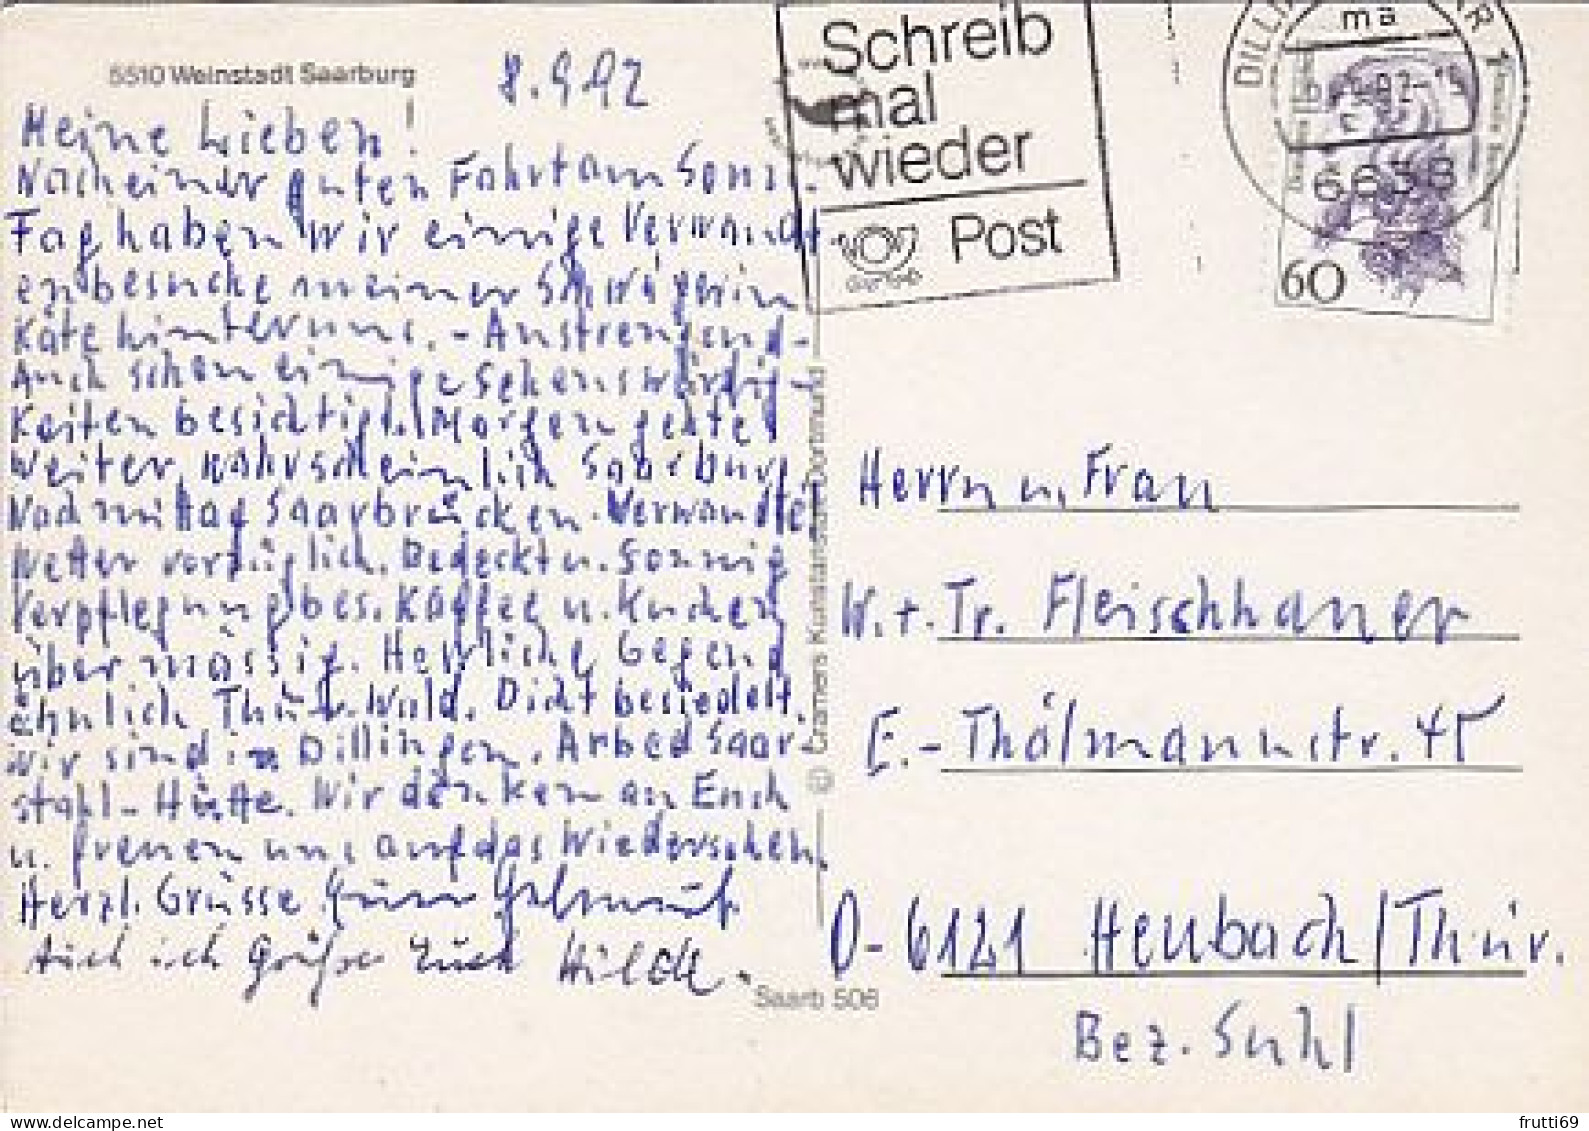 5510 Weinstadt Saarburg
8.9.92
Meine Lieben!
Nach einer guten Fahrt am Sonn-
tag haben wir einige Verwandt-
enbesuche meiner Schwägerin
Käte hinter uns. - Anstrengend -
Auch schon einige Sehenswürdig-
keiten besichtigt. Morgen geht es
weiter, wahrscheinlich Saarburg,
Nachmittag Saarbrücken - Verwandte.
Wetter vorzüglich. Bedeckt u. sonnig
Verpflegung bes. Kaffee u. Kuchen
übermässig. Herrliche Gegend
ähnlich Thür. Wald. Dicht besiedelt.
Wir sind in Dillingen, Arbed Saar-
stahl-Hütte. Wir denken an Euch
u. freuen uns auf das Wiedersehen.
Herzl. Grüsse Euer Helmut.
Auch ich Grüße Euch Hilde.
Saarb 506
© Cramers Kunstanstalt, Dortmund
Schreib
mal
wieder
Post
ma
6638
60
Herrn u. Frau
W. + Tr. Fleischhauer
E.-Thälmannstr. 45
O-6121 Heubach/Thür.
Bez. Suhl
frutti69